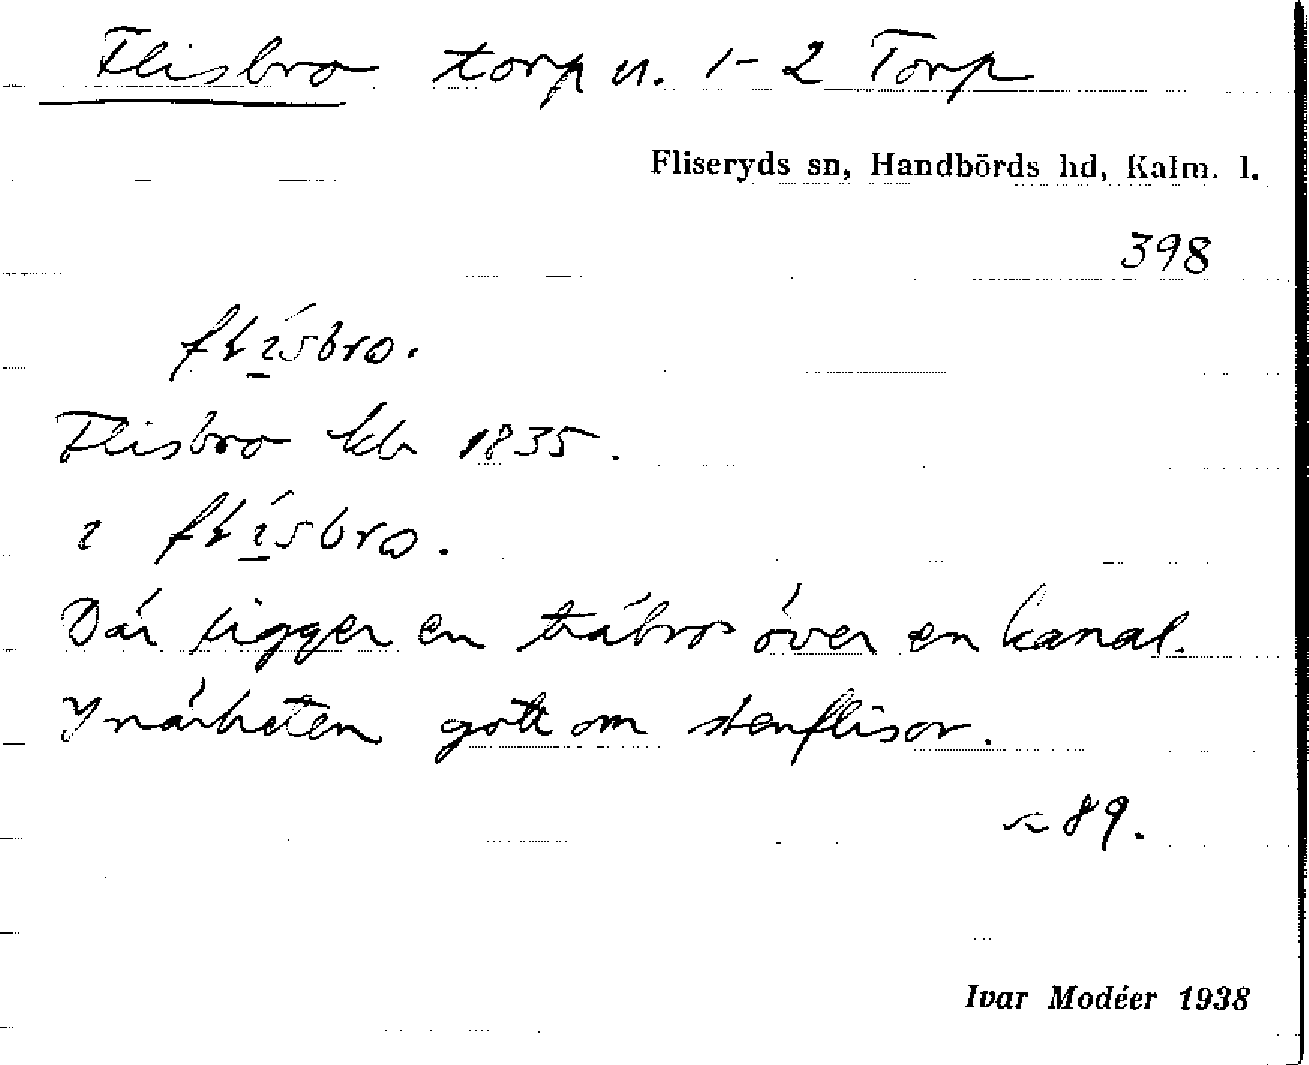 Flisbro torp u. 1-2 Torp
Fliseryds sn, Handbörds hd, Kalm. l.
398
flísbro.
Flisbro kb 1835.
i flísbro.
Där ligger en träbro över en kanal.
I närheten gott om stenflisor.
89.
Ivar Modéer 1938